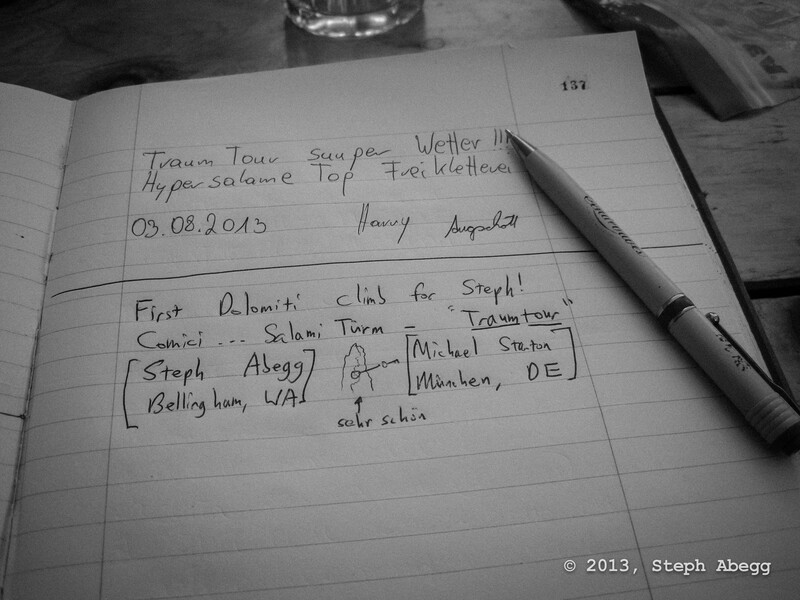 137
Traum Tour suuper Wetter !!!
Hypersalame Top Freikletterei
03.08.2013 Harry
First Dolomiti climb for Steph!
Comici ... Salami Türm = "Traumtour"
[Steph Abegg] [Michael Stanton]
[Bellingham, WA] [München, DE]
sehr schön
© 2013, Steph Abegg